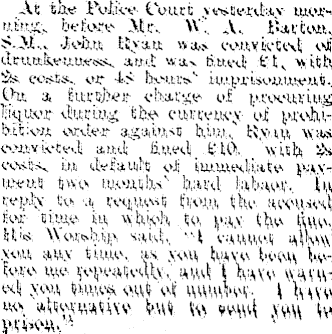 At the Police Court yesterday mor-
ning, before Mr. W. A. Barton,
S.M., John Ryan was convicted of
drunkenness, and was fined £1, with
2s costs, or 48 hours' imprisonment.
On a further charge of procuring
liquor during the currency of prohi-
bition order against him, Ryan was
convicted and fined £10, with 2s
costs, in default of immediate pay-
ment two months' hard labor. In
reply to a request from the accused
for time in which to pay the fine,
His Worship said, "I cannot allow
you any time, as you have been be-
fore me repeatedly, and I have warn-
ed you times out of number. I have
no alternative but to send you to
prison."